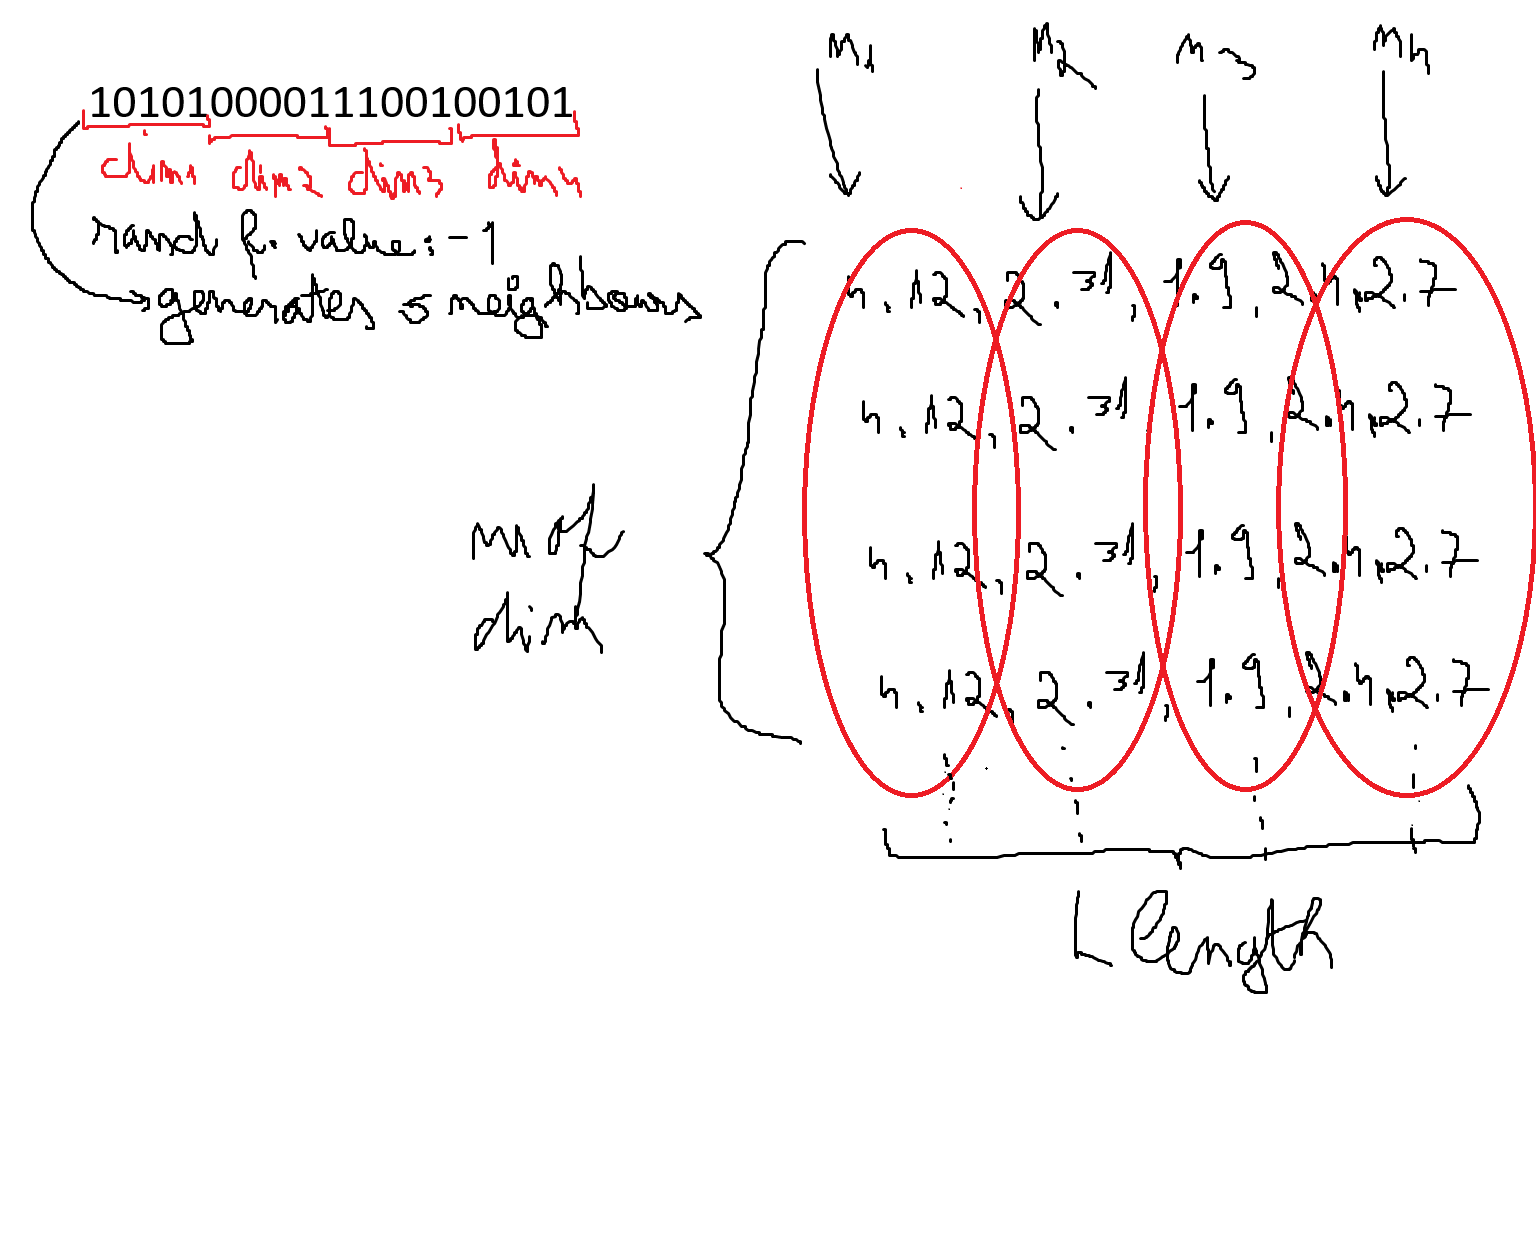 10101000011100100101
dim1 dim2 dim3 dim4
rand f. value: -1
generates 5 neighbours
n1 n2 n3 n4
4.12, 2.31, 1.9, 2.4, 2.7
4.12, 2.31 1.9, 2.4, 2.7
4.12, 2.31, 1.9, 2.4, 2.7
4.12, 2.31, 1.9, 2.4, 2.7
n of
dim
L length